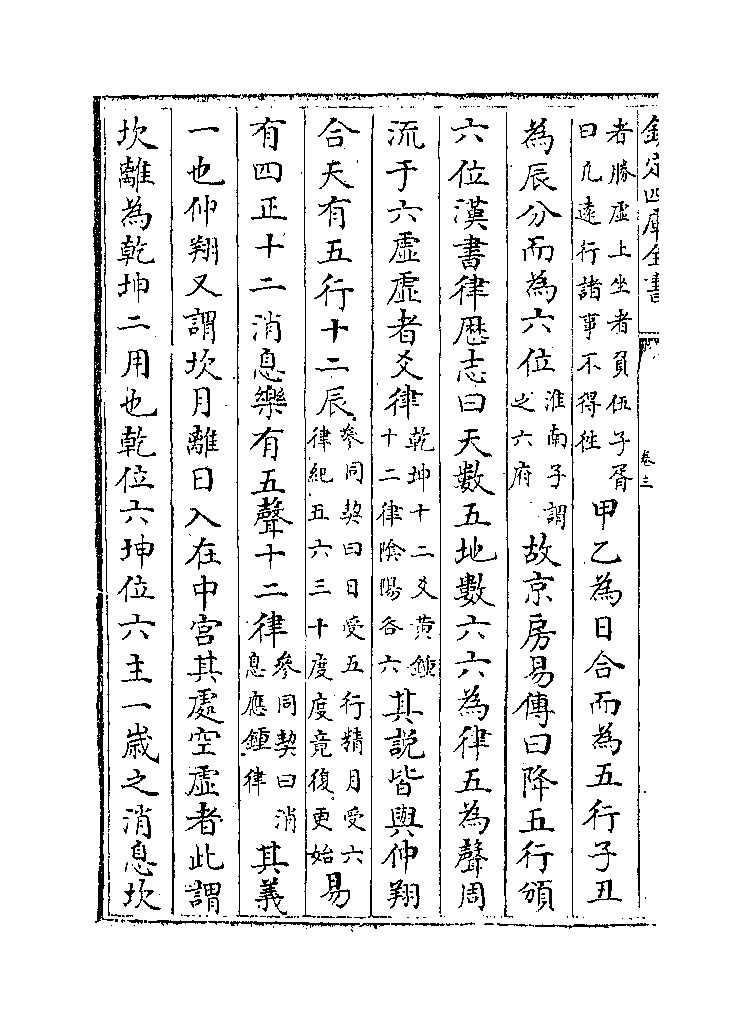 欽定四庫全書
卷三
者勝虛上坐者負伍子胥
曰凡遠行諸事不得往
甲乙為日合而為五行子丑
為辰分而為六位
淮南子謂
之六府
故京房易傳曰降五行頒
六位漢書律厯志曰天數五地數六六為律五為聲周
流于六虛虛者爻律
乾坤十二爻黃鍾
十二律陰陽各六
其說皆與仲翔
合天有五行十二辰
參同契曰日受五行精月受六
律紀五六三十度度竟復更始
易
有四正十二消息樂有五聲十二律
參同契曰消
息應鍾律
其義
一也仲翔又謂坎月離日入在中宮其處空虛者此謂
坎離為乾坤二用也乾位六坤位六主一歲之消息坎